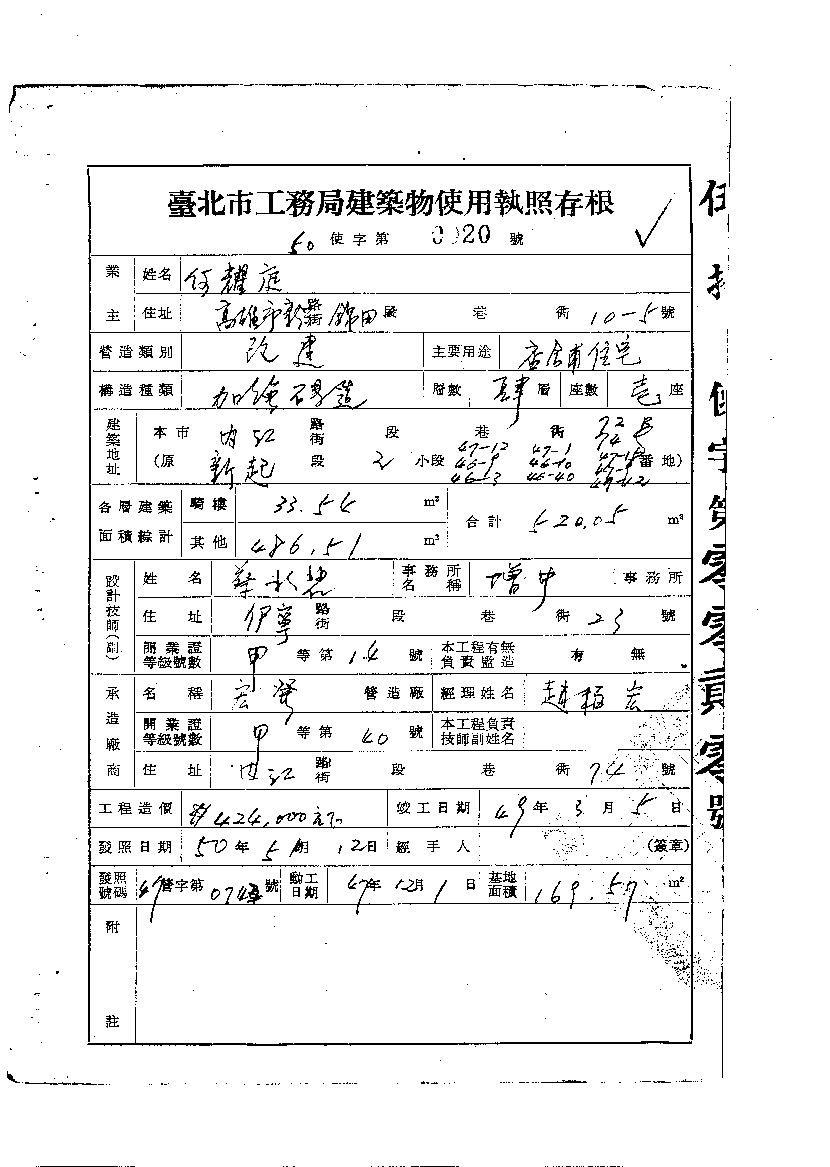 臺北市工務局建築物使用執照存根
50 使字第 0020 號
業主 姓名 何耀庭
住址 高雄市新興路街錦田段 巷 街 10-5 號
營造類別 改建 主要用途 店舖住宅
構造種類 加強磚造 層數 肆 層 座數 壱 座
建築地址 本市 內江 路街 段 巷 街 72 74 号
(原 新起 段 2 小段 47-12 47-1 46-9 46-10 46-3 46-40 番地)
各層建築面積綜計 騎樓 33.54 m² 合計 520.05 m²
其他 486.51 m²
設計技師(副) 姓名 葉 事務所名稱 增中 事務所
住址 伊寧 路街 段 巷 街 23 號
開業證等級號數 甲 等第 14 號 本工程有無負責監造 有 無
承造廠商 名稱 宏 營造廠 經理姓名 趙栢宏
開業證等級號數 甲 等第 40 號 本工程負責技師副姓名
住址 內江 路街 段 巷 街 74 號
工程造價 424,000元 竣工日期 49年 3月 5日
發照日期 50年 5月 12日 經手人 (簽章)
發照號碼 49 營字第 號 動工日期 47年 12月 1日 基地面積 169.57 m²
附註
使字第零零貳零號